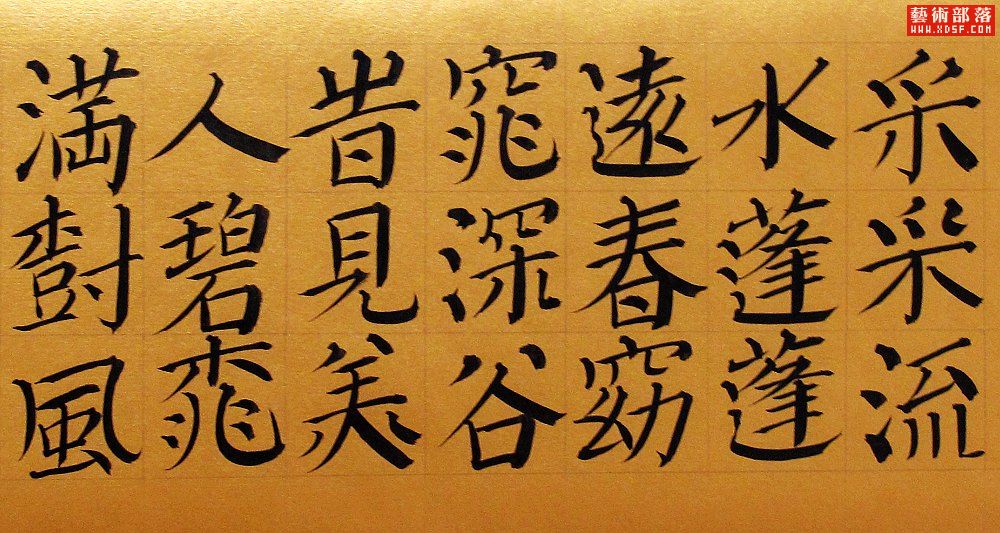 藝術部落
WWW.XDSF.COM
采采流
水蓬蓬
遠春窈
窕深谷
旹見美
人碧桃
満樹風